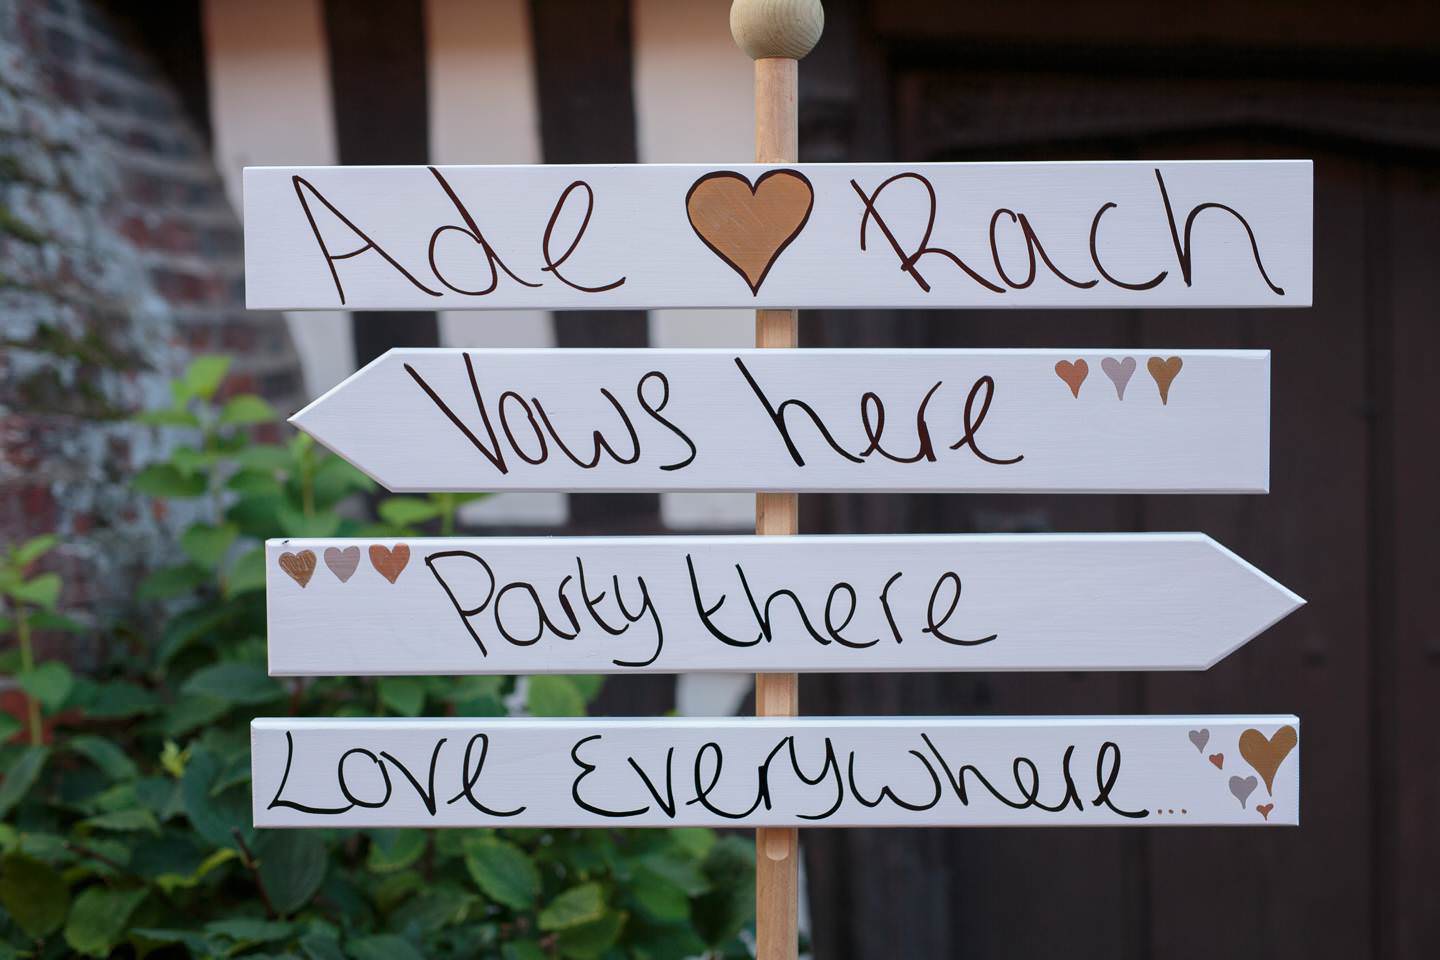 Ade ♥ Rach
Vows here
Party there
Love Everywhere...